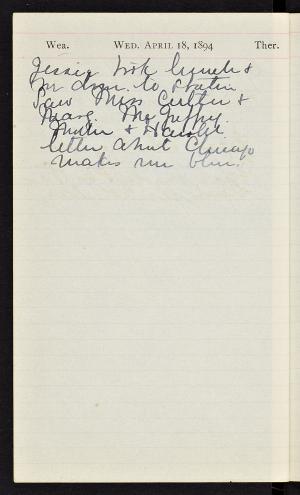 Wea. WED. APRIL 18, 1894 Ther.
Jessie took lunch &
down to station
Saw Miss Cutler &
Marg.
Mother & Harold.
letter about Chicago
makes me blue.